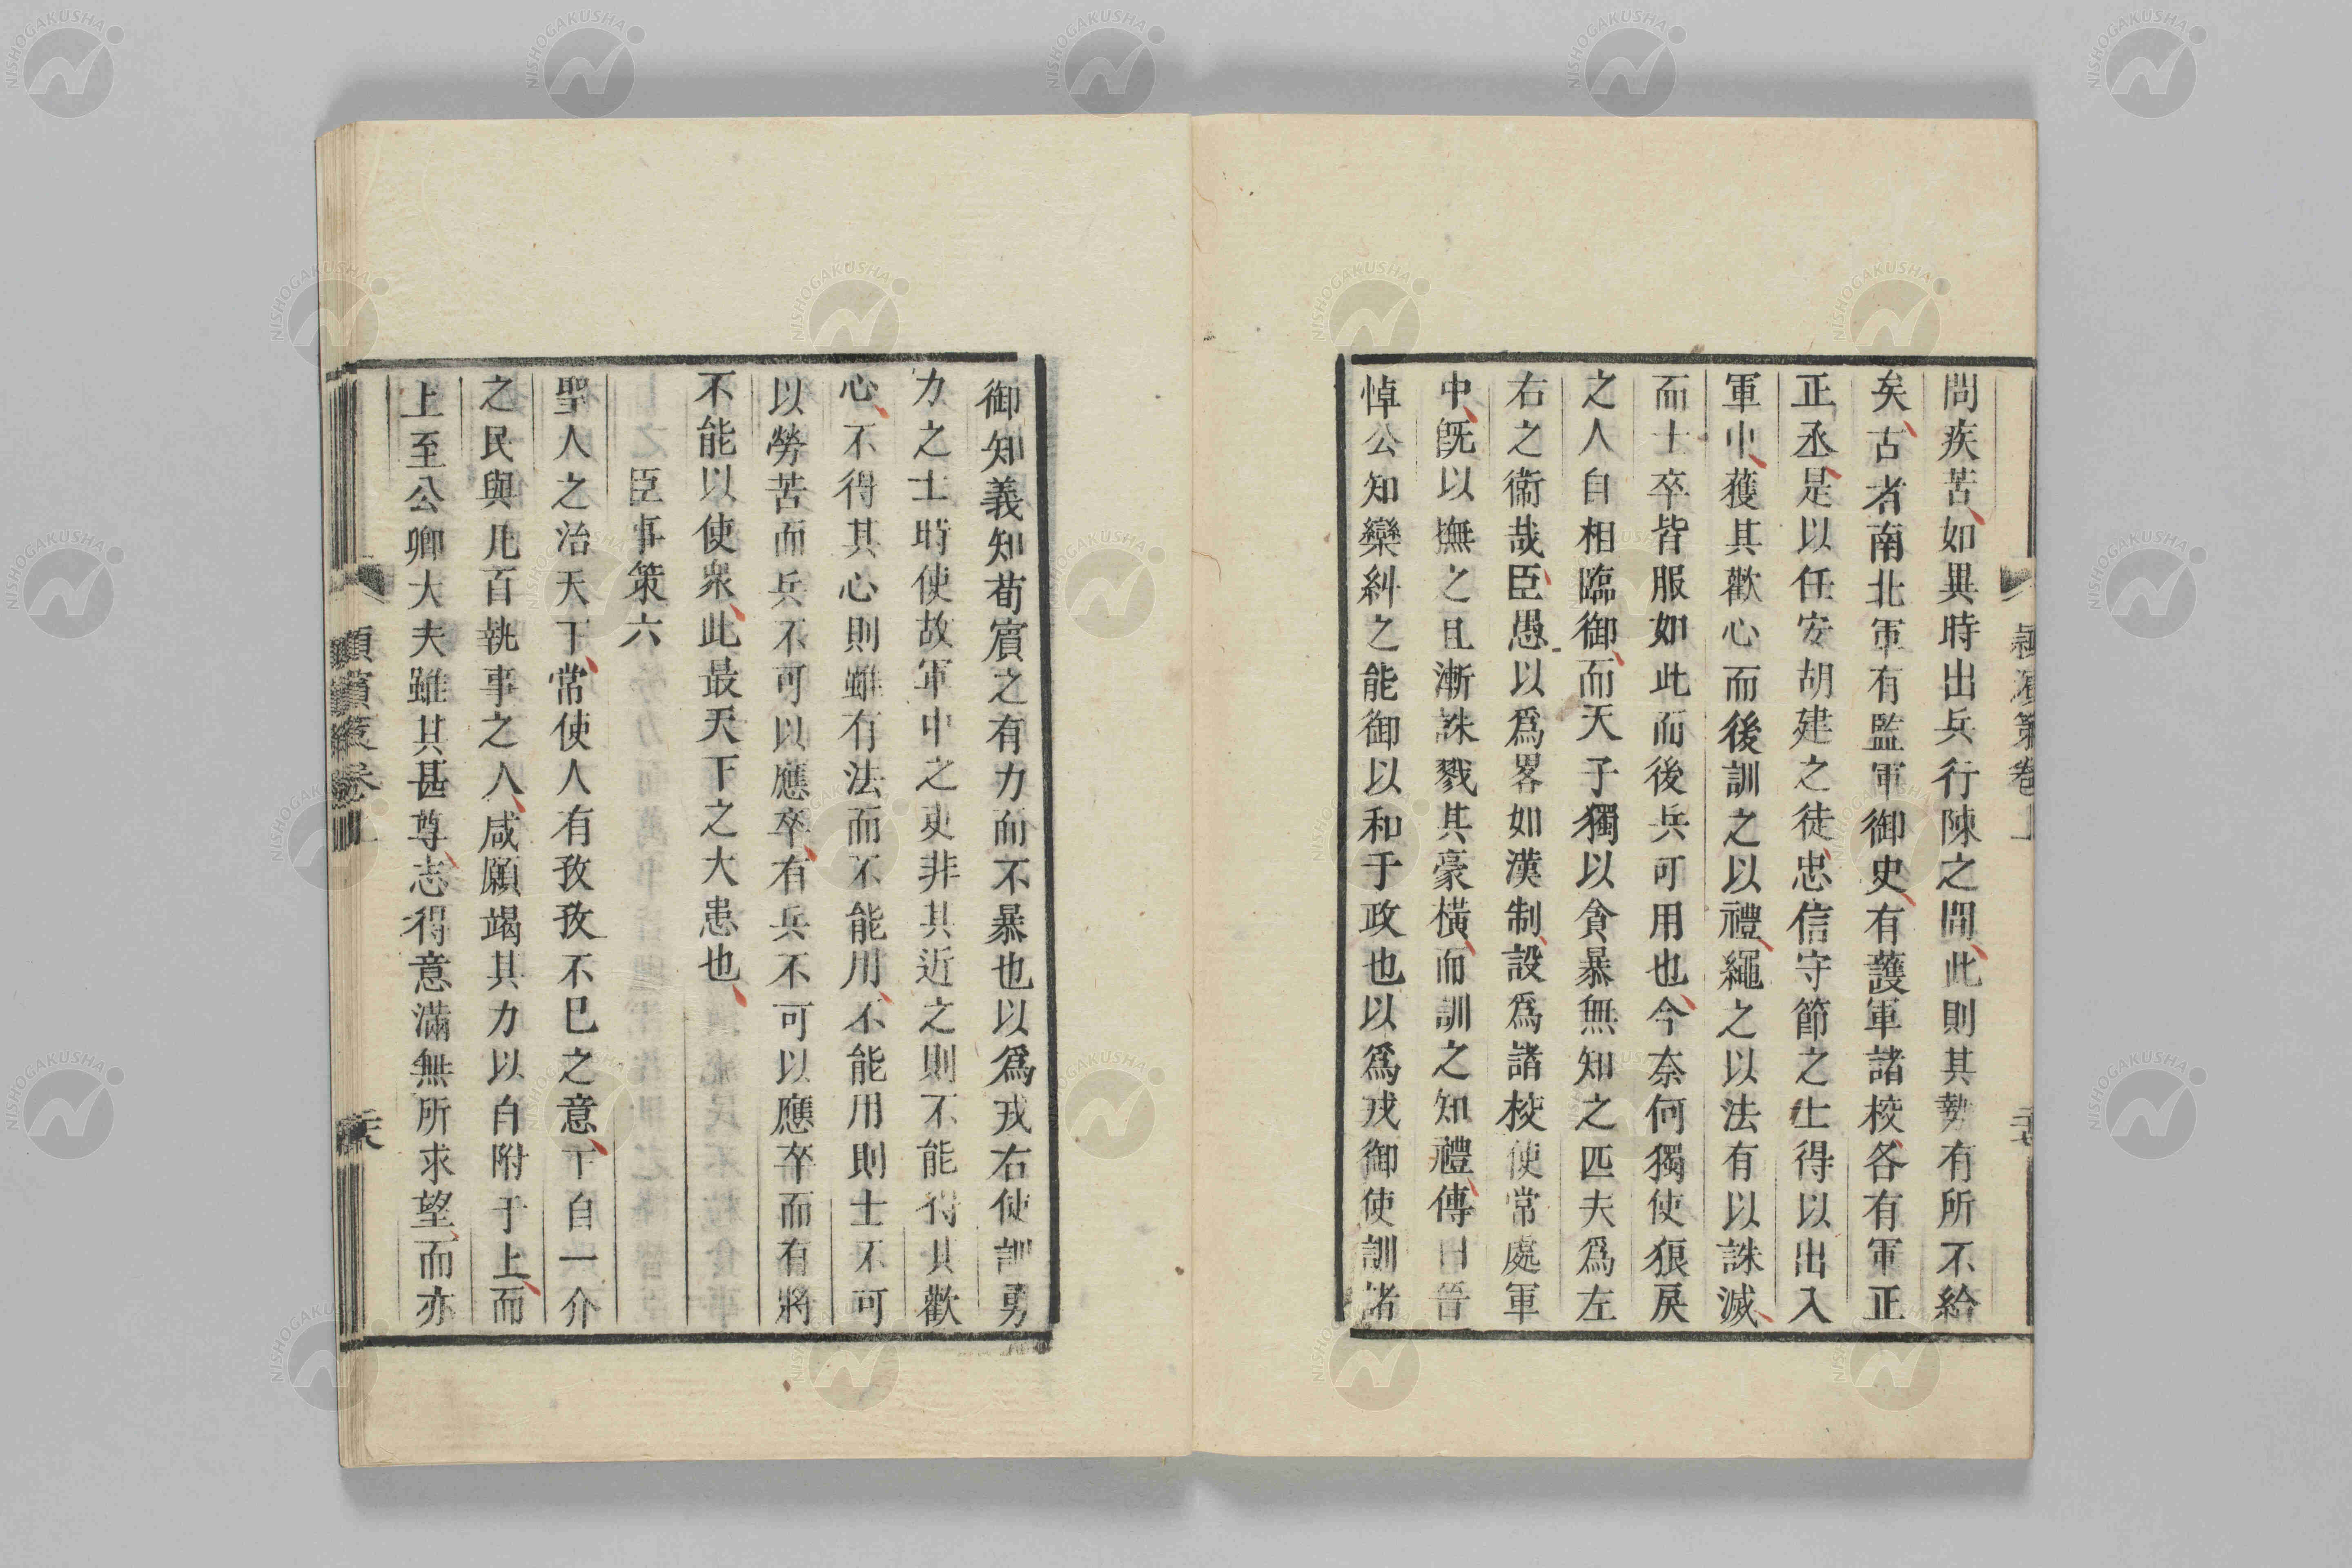 問疾苦如異時出兵行陳之間此則其勢有所不給
矣古者南北軍有監軍御史有護軍諸校各有軍正
正丞是以任安胡建之徒忠信守節之士得以出入
軍中獲其歡心而後訓之以禮繩之以法有以誅滅
而士卒皆服如此而後兵可用也今奈何獨使狠戾
之人自相臨御而天子獨以貪暴無知之匹夫爲左
右之衞哉臣愚以爲畧如漢制設爲諸校使常處軍
中旣以撫之且漸誅戮其豪橫而訓之知禮傳曰晉
悼公知欒糾之能御以和于政也以爲戎御使訓諸
御知義知荀賓之有力而不暴也以爲戎右使訓勇
力之士時使故軍中之吏非其近之則不能得其歡
心不得其心則雖有法而不能用不能用則士不可
以勞苦而兵不可以應卒有兵不可以應卒而有將
不能以使衆此最天下之大患也
臣事策六
聖人之治天下常使人有孜孜不已之意下自一介
之民與凡百執事之人咸願竭其力以自附于上而
上至公卿大夫雖其甚尊志得意滿無所求望而亦
潁濱策卷上
NISHOGAKUSHA